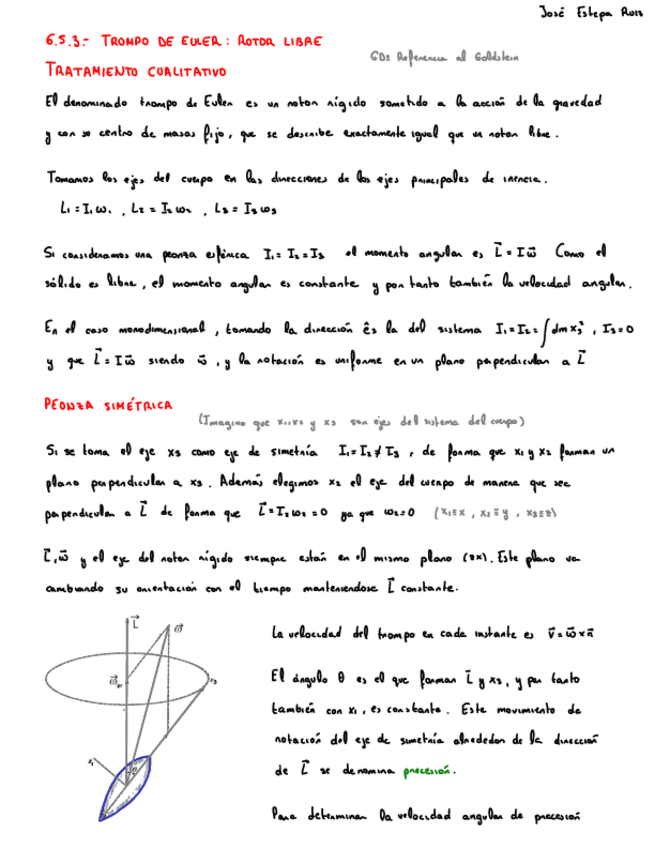 José Estepa Ruiz
6.5.3.- TROMPO DE EULER: ROTOR LIBRE
GD: Referencia al Goldstein
TRATAMIENTO CUALITATIVO
El denominado trompo de Euler es un rotor rígido sometido a la acción de la gravedad
y con so centro de masas fijo, que se describe exactamente igual que un rotor libre.
Tomamos los ejes del cuerpo en las direcciones de los ejes principales de inercia.
L₁ = I₁ω₁ , L₂ = I₂ω₂ , L₃ = I₃ω₃
Si consideramos una peonza esférica I₁ = I₂ = I₃ el momento angular es L⃗ = Iω⃗ Como el
sólido es libre, el momento angular es constante y por tanto también la velocidad angular.
En el caso monodimensional, tomando la dirección ê₃ la del sistema I₁ = I₂ = ∫dm x₃² , I₃ = 0
y que L⃗ = Iω⃗ siendo ω⃗, y la rotación es uniforme en un plano perpendicular a L⃗
PEONZA SIMÉTRICA
(Imagino que x₁,x₂ y x₃ son ejes del sistema del cuerpo)
Si se toma el eje x₃ como eje de simetría I₁ = I₂ ≠ I₃ , de forma que x₁ y x₂ forman un
plano perpendicular a x₃. Además elegimos x₂ el eje del cuerpo de manera que sea
perpendicular a L⃗ de forma que L⃗ = I₂ω₂ = 0 ya que ω₂ = 0 (x₁≡x , x₂≡y , x₃≡z)
L⃗, ω⃗ y el eje del rotor rígido siempre están en el mismo plano (zx). Este plano va
cambiando su orientación con el tiempo manteniendose L⃗ constante.
L⃗
ω⃗
x₃
x₁
θ
La velocidad del trompo en cada instante es v⃗ = ω⃗ × r⃗
El ángulo θ es el que forman L⃗ y x₃, y por tanto
también con x₁, es constante. Este movimiento de
rotación del eje de simetría alrededor de la dirección
de L⃗ se denomina precesión.
Para determinar la velocidad angular de precesión